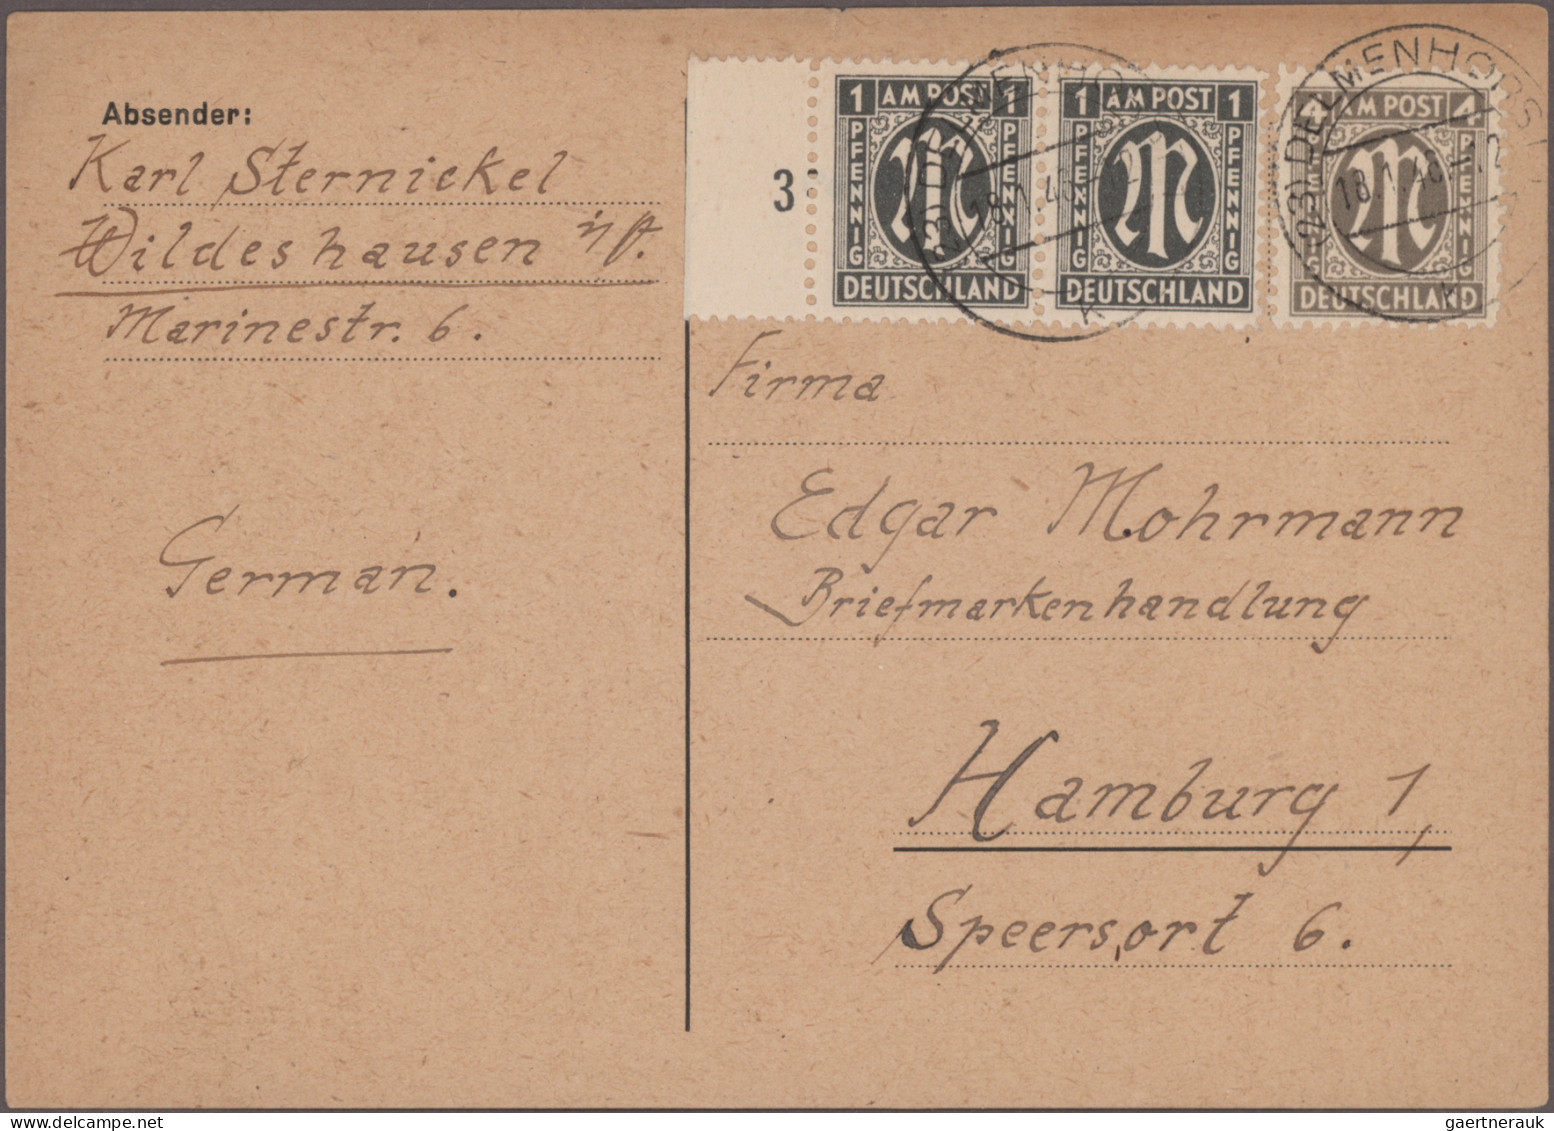 Absender:
Karl Sternickel
Wildeshausen i/O.
Marinestr. 6.
German.
3
1 AM POST 1
PFENNIG PFENNIG
DEUTSCHLAND
1 AM POST 1
PFENNIG PFENNIG
DEUTSCHLAND
4 AM POST 4
PFENNIG
DEUTSCHLAND
(23) DELMENHORST
18.1.46
Firma
Edgar Mohrmann
Briefmarkenhandlung
Hamburg 1,
Speersort 6.
gaertnerauk